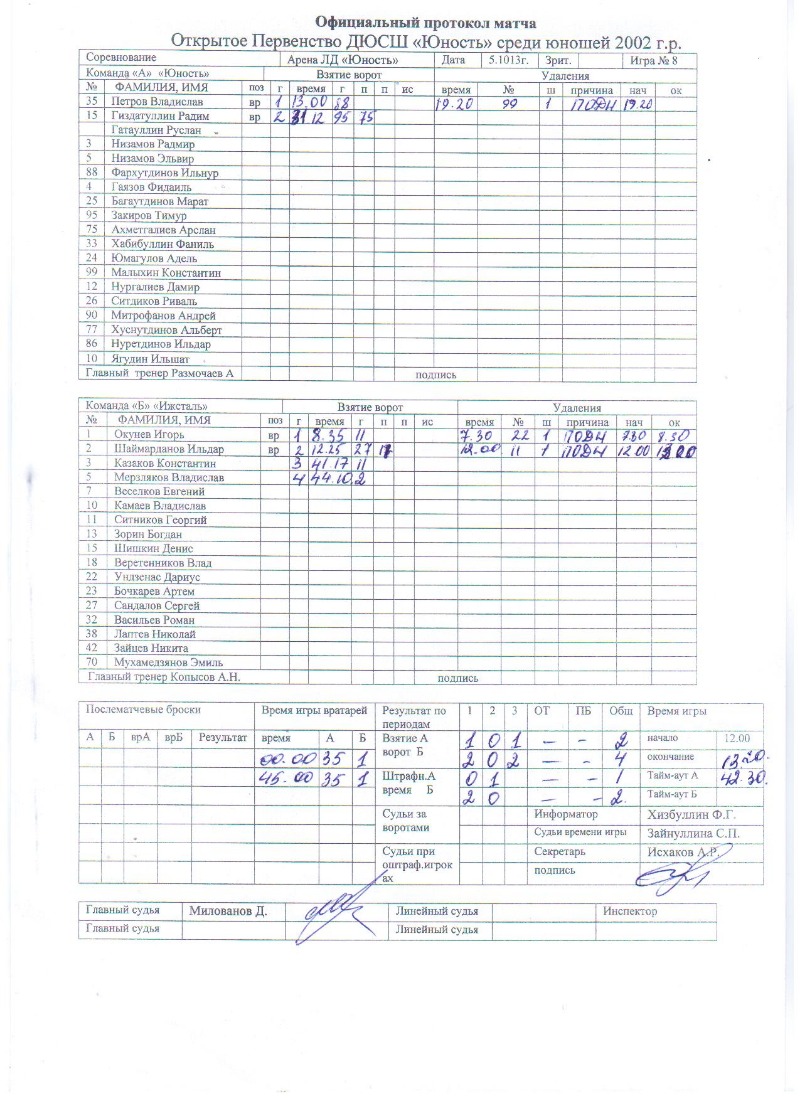 Официальный протокол матча
Открытое Первенство ДЮСШ «Юность» среди юношей 2002 г.р.
Соревнование Арена ЛД «Юность» Дата 5.1013г. Зрит. Игра № 8
Команда «А» «Юность» Взятие ворот Удаления
№ ФАМИЛИЯ, ИМЯ поз г время г п п ис время № ш причина нач ок
35 Петров Владислав вр 1 13.00 88 19.20 99 1 ПОДН 19.20
15 Гиздатуллин Радим вр 2 31 12 95 75
Гатауллин Руслан
3 Низамов Радмир
5 Низамов Эльвир
88 Фархутдинов Ильнур
4 Гаязов Фидаиль
25 Багаутдинов Марат
95 Закиров Тимур
75 Ахметгалиев Арслан
33 Хабибуллин Фаниль
24 Юмагулов Адель
99 Малыхин Константин
12 Нургалиев Дамир
26 Ситдиков Риваль
90 Митрофанов Андрей
77 Хуснутдинов Альберт
86 Нуретдинов Ильдар
10 Ягудин Ильшат
Главный тренер Размочаев А подпись
Команда «Б» «Ижсталь» Взятие ворот Удаления
№ ФАМИЛИЯ, ИМЯ поз г время г п п ис время № ш причина нач ок
1 Окунев Игорь вр 1 8.35 11 7.30 22 1 ПОДН 7.30 8.30
2 Шаймарданов Ильдар вр 2 12.25 27 12.00 11 1 ПОДН 12 00
3 Казаков Константин 3 41 17 11
5 Мерзляков Владислав 4 44.10 2
7 Веселков Евгений
10 Камаев Владислав
11 Ситников Георгий
13 Зорин Богдан
15 Шишкин Денис
18 Веретенников Влад
22 Ундзенас Дариус
23 Бочкарев Артем
27 Сандалов Сергей
32 Васильев Роман
38 Лаптев Николай
42 Зайцев Никита
70 Мухамедзянов Эмиль
Главный тренер Копысов А.Н. подпись
Послематчевые броски Время игры вратарей Результат по периодам 1 2 3 ОТ ПБ Общ Время игры
А Б врА врБ Результат время А Б Взятие А 1 0 1 – – 2 начало 12.00
00.00 35 1 ворот Б 2 0 2 – - 4 окончание 13.20.
45.00 35 1 Штрафн.А 0 1 – – 1 Тайм-аут А 42.30.
время Б 2 0 – - 2. Тайм-аут Б
Судьи за воротами Информатор Хизбуллин Ф.Г.
Судьи времени игры Зайнуллина С.П.
Судьи при оштраф.игрок ах Секретарь Исхаков А.Р.
подпись
Главный судья Милованов Д. Линейный судья Инспектор
Главный судья Линейный судья